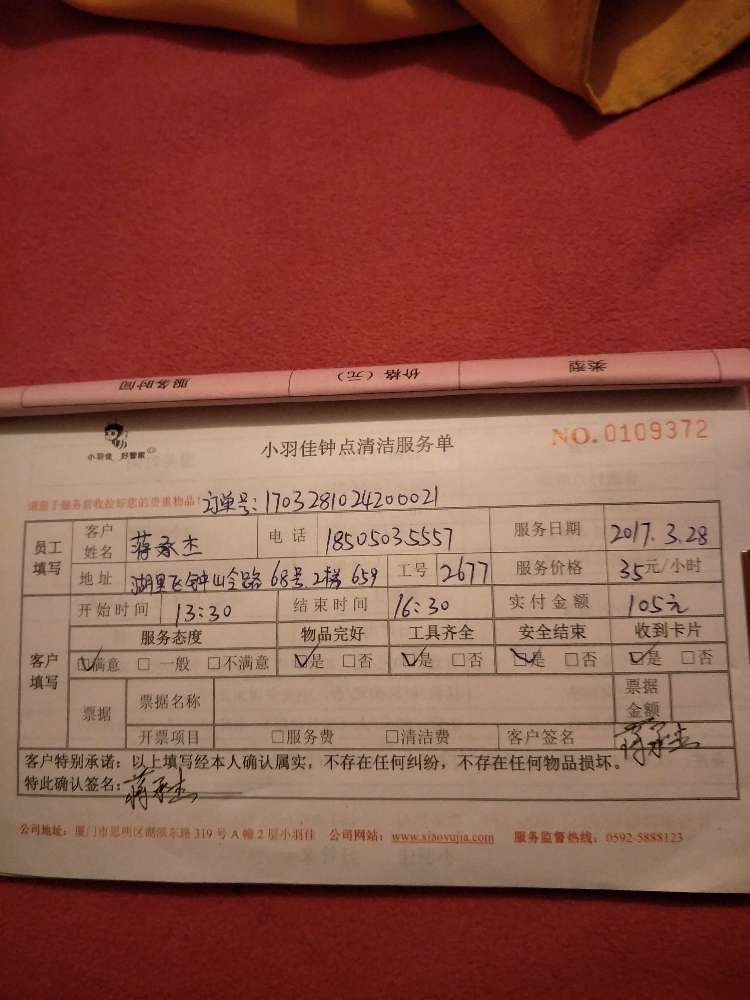 服务时间 价格（元） 类型
小羽佳 好管家
小羽佳钟点清洁服务单
NO. 0109372
请您于服务前收拾好您的贵重物品！订单号：1703281024200021
员工填写 客户姓名 蒋承杰 电话 18505035557 服务日期 2017.3.28
地址 68号2楼659 工号 2677 服务价格 35元/小时
客户填写 开始时间 13:30 结束时间 16:30 实付金额 105元
服务态度 物品完好 工具齐全 安全结束 收到卡片
☑满意 □ 一般 □不满意 ☑是 □否 ☑是 □否 ☑是 □否 ☑是 □否
票据 票据名称 票据金额
开票项目 □服务费 □清洁费 客户签名 蒋承杰
客户特别承诺：以上填写经本人确认属实，不存在任何纠纷，不存在任何物品损坏。
特此确认签名：蒋承杰
公司地址：厦门市思明区湖滨东路 319 号 A 幢 2 层小羽佳 公司网站：www.xiaoyujia.com 服务监督热线：0592-5888123